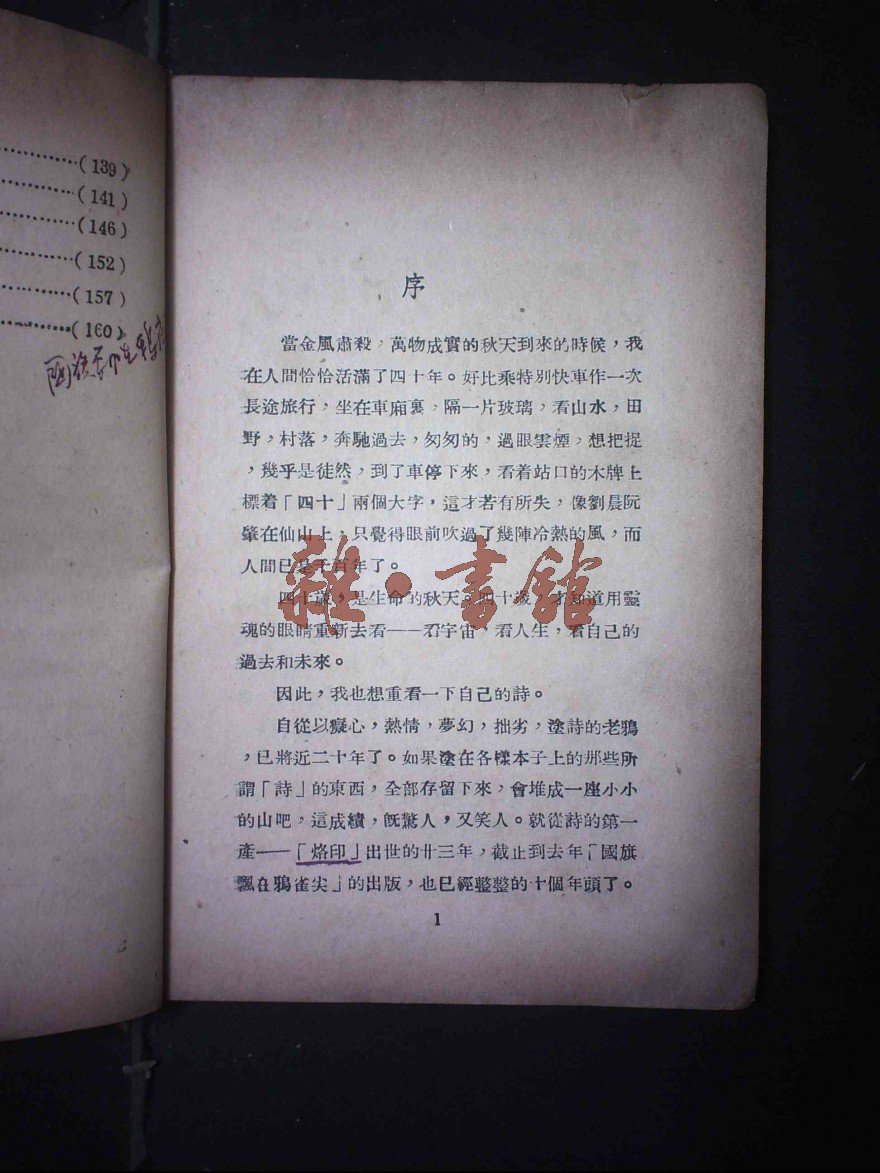 (139)
(141)
(146)
(152)
(157)
(160)
序
當金風肅殺,萬物成實的秋天到來的時候,我
在人間恰恰活滿了四十年。好比乘特別快車作一次
長途旅行,坐在車廂裏,隔一片玻璃,看山水,田
野,村落,奔馳過去,匆匆的,過眼雲煙,想把捉
,幾乎是徒然,到了車停下來,看着站口的木牌上
標着「四十」兩個大字,這才若有所失,像劉晨阮
肇在仙山上,只覺得眼前吹過了幾陣冷熱的風,而
人間已是千百年了。
四十歲,是生命的秋天。四十歲,才知道用靈
魂的眼睛重新去看——看宇宙,看人生,看自己的
過去和未來。
因此,我也想重看一下自己的詩。
自從以癡心,熱情,夢幻,拙劣,塗詩的老鴉
,已將近二十年了。如果塗在各樣本子上的那些所
謂「詩」的東西,全部存留下來,會堆成一座小小
的山吧,這成績,旣驚人,又笑人。就從詩的第一
產——「烙印」出世的廿三年,截止到去年「國旗
飄在鴉雀尖」的出版,也已經整整的十個年頭了。
1
雜·書館